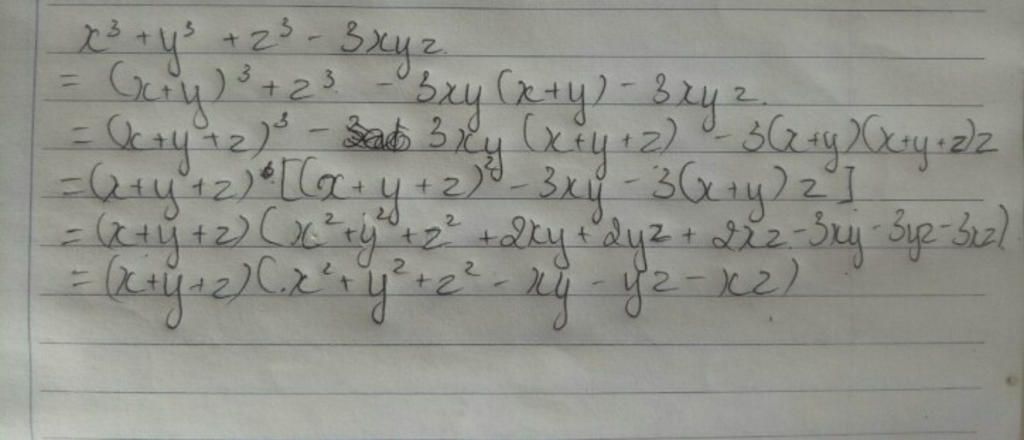 x³ + y³ + z³ - 3xyz.
= (x+y)³ + z³ - 3xy(x+y) - 3xyz.
= (x+y+z)³ - 3xy(x+y+z) - 3(x+y)(x+y+z)z
= (x+y+z)[(x+y+z)² - 3xy - 3(x+y)z]
= (x+y+z)(x²+y²+z²+2xy+2yz+2xz-3xy-3yz-3xz)
= (x+y+z)(x²+y²+z²-xy-yz-xz)